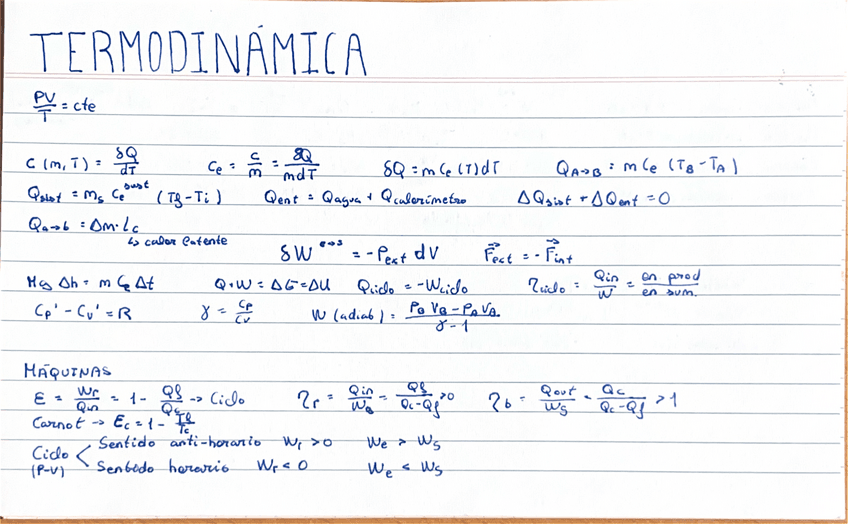 TERMODINÁMICA
PV/T = cte
C (m, T) = δQ/dT    Ce = C/m = δQ/mdT    δQ = m Ce (T) dT    QA→B = m Ce (TB - TA)
Qsist = ms Ce^sust (Tf - Ti)    Qent = Qagua + Qcalorímetro    ΔQsist + ΔQent = 0
Qa→b = Δm · Lc
↳ calor latente    δW^e→s = -Pext dV    F⃗ext = - F⃗int
Mg Δh = m Ce Δt    Q + W = ΔE = ΔU    Qciclo = -Wciclo    ηciclo = Qin/W = en prod/en sum.
Cp' - Cv' = R    γ = Cp/Cv    W (adiab) = PB VB - PA VA/γ - 1
MÁQUINAS
E = Wr/Qin = 1 - Qf/Qc → Ciclo    ηr = Qin/We = Qf/Qc-Qf > 0    ηb = Qout/Ws = Qc/Qc-Qf > 1
Carnot → Ec = 1 - Tf/Tc
Ciclo (P-V) < Sentido anti-horario Wr > 0    We > Ws
Sentido horario Wr < 0    We < Ws